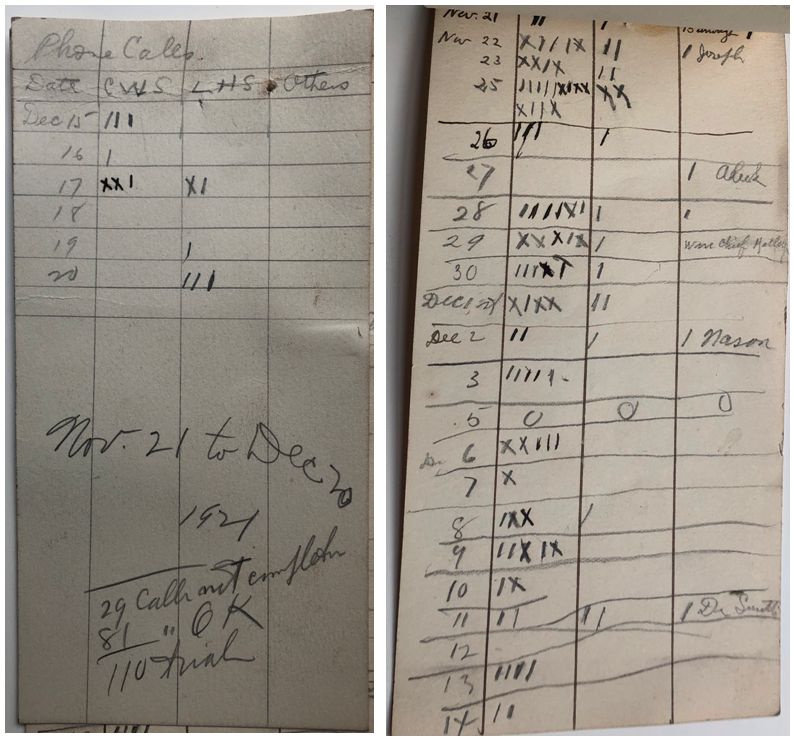 Phone Calls.
Date CWS LHS Others
Dec 15 III
16 I
17 XXI XI
18
19 I
20 III
Nov. 21 to Dec 20
1921
29 Calls not
81 " OK
110 trials
Nov. 21 II I I
Nov 22 II I Joseph
23 XXIX II
25 XX
XIIX
26 III I
27 I
28 IIIIXI I I
29 XXXIX I
30 IIIXXI I
Dec 1, 21 XIXX II
Dec 2 II I I Nason
3 IIIII -
5 0 0 0
De 6 XXIII
7 X
8 IXX I
9 IIXIX
10 IX
11 II II I Dr Smith
12
13 IIII
14 II